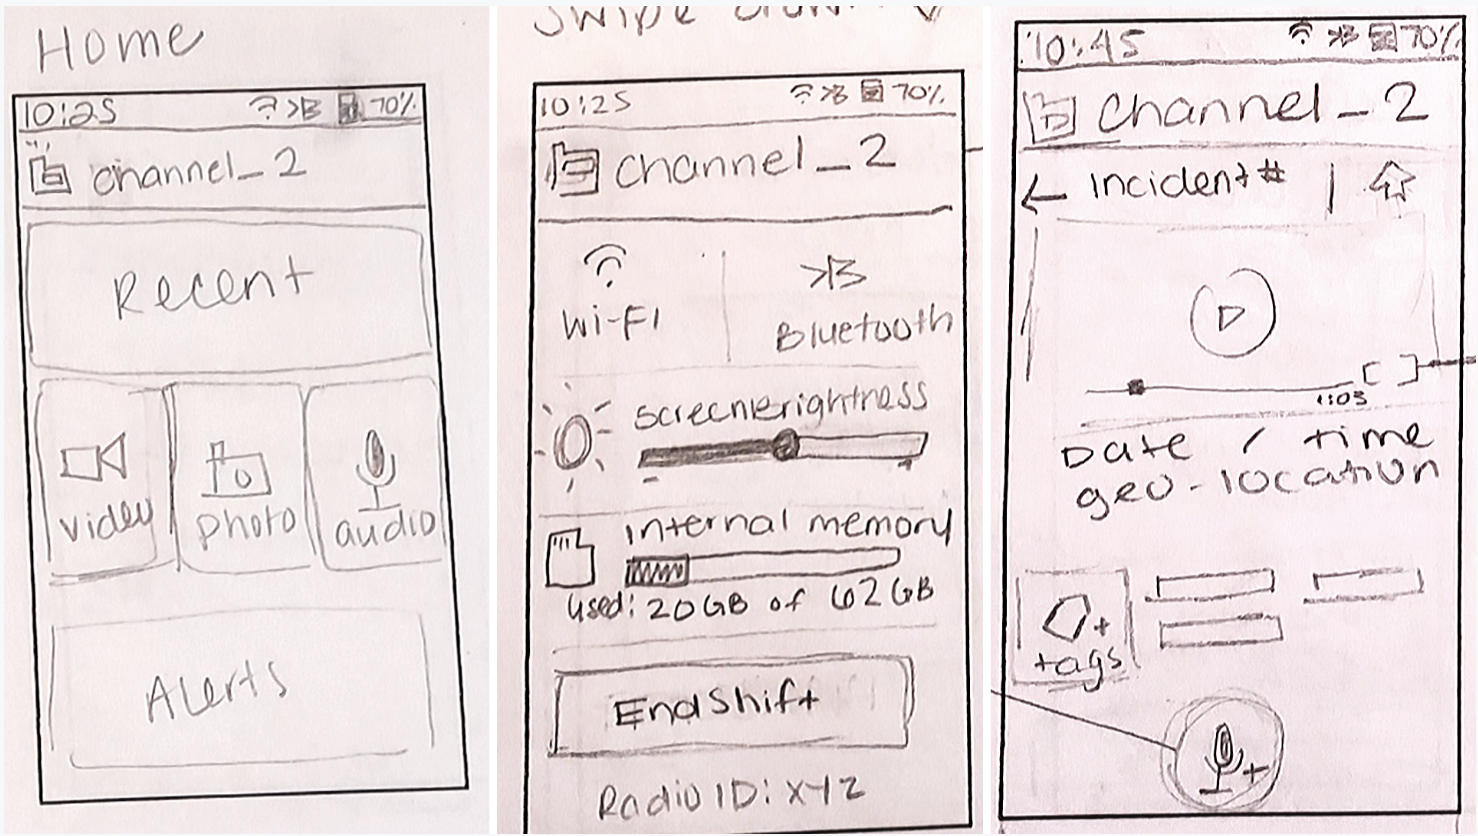 Home
10:25 70%
channel_2
Recent
video photo audio
Alerts
swipe down
10:25 70%
channel_2
Wi-FI Bluetooth
screen brightness
internal memory
used: 20GB of 62GB
End Shift
Radio ID: XYZ
10:45 70%
channel_2
← incident# |
1:03
Date / time
geo-location
+
tags
+